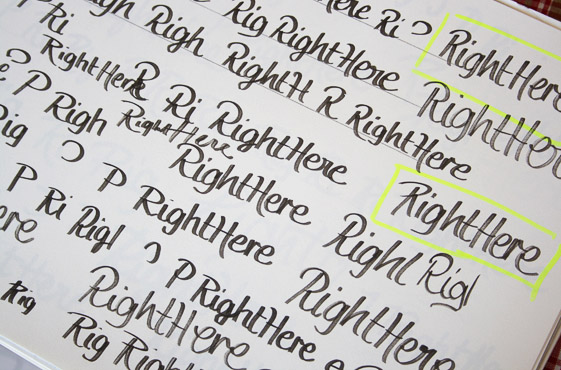 here Ri
Righ Rig RightHere RightHere
Ri
RightHere R Ri RightH R RightHere RightHere
P Righ RightHere RightHere
Rig RightHere RightHere
P Ri Rigl P RightHere Righl Rigl
ere
Rig RightHere P RightHere RightHere
Rig RightHere e